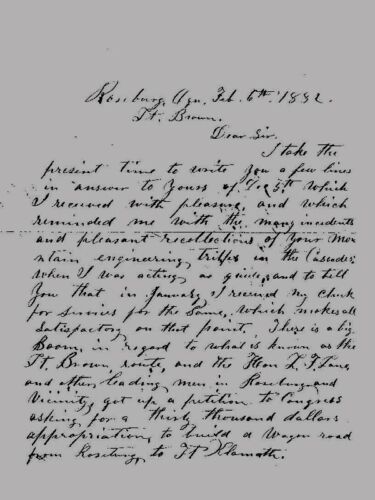 Roseburg, Ogn, Feb. 6th, 1882.
Lt. Brown.
Dear Sir.
I take the
present time to write you a few lines
in answer to Yours of Feb 5th which
I received with pleasure and which
reminded me with the many incidents
and pleasant recollections of Your Mou-
ntain engineering tripps in the Cascades
when I was acting as guide, and to till
You that in January I received my check
for services for the Same, which makes all
satisfactory on that point. There is a big
Boom, in regard to what is known as the
Lt. Brown, route, and the Hon L. F. Lane,
and other leading men in Roseburg and
Vicinity, got up a petition to Congress
asking for a thirty thousand dollars
appropriation to build a Wagon road
from Roseburg to Ft Klamath.